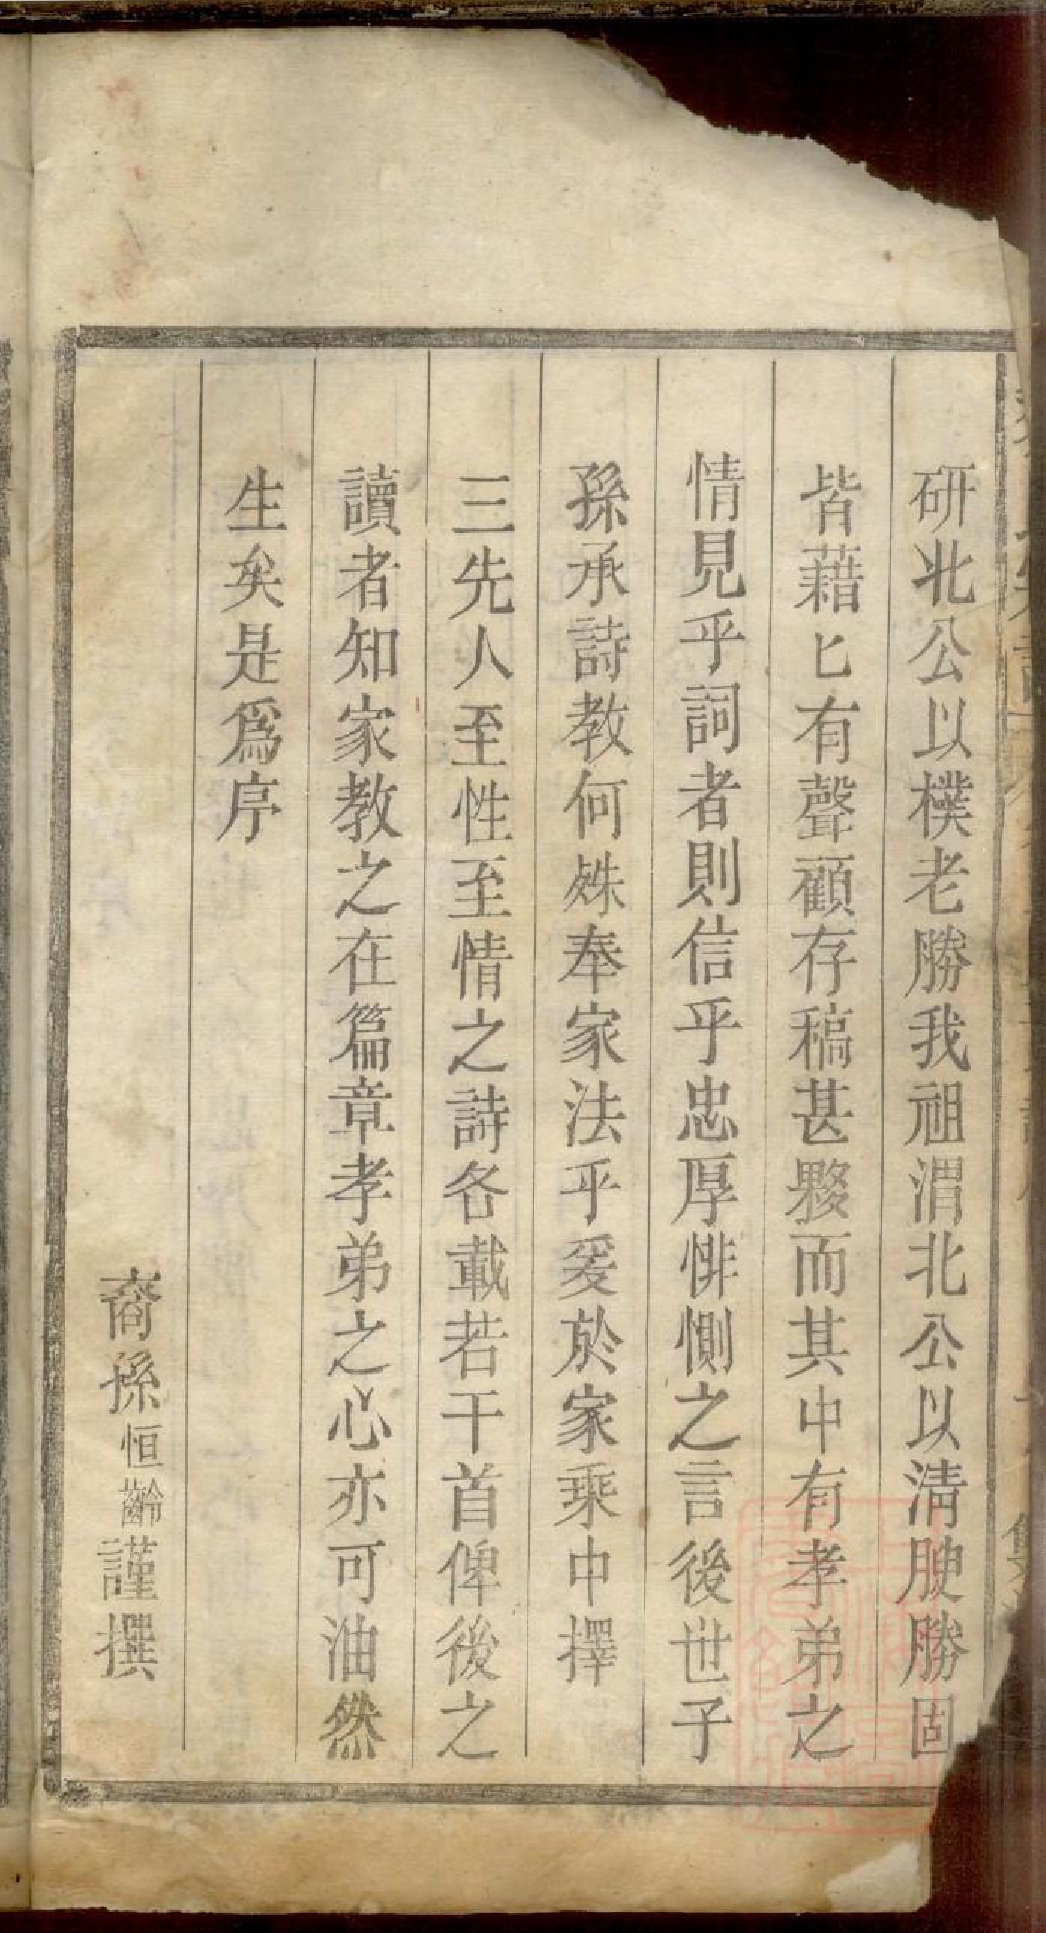 研北公以樸老勝我祖渭北公以淸腴勝固
皆藉匕有聲顧存稿甚夥而其中有孝弟之
情見乎詞者則信乎忠厚悱惻之言後世子
孫承詩教何殊奉家法乎爰於家乘中擇
三先人至性至情之詩各載若干首俾後之
讀者知家教之在篇章孝弟之心亦可油然
生矣是爲序
裔孫恒齡謹撰